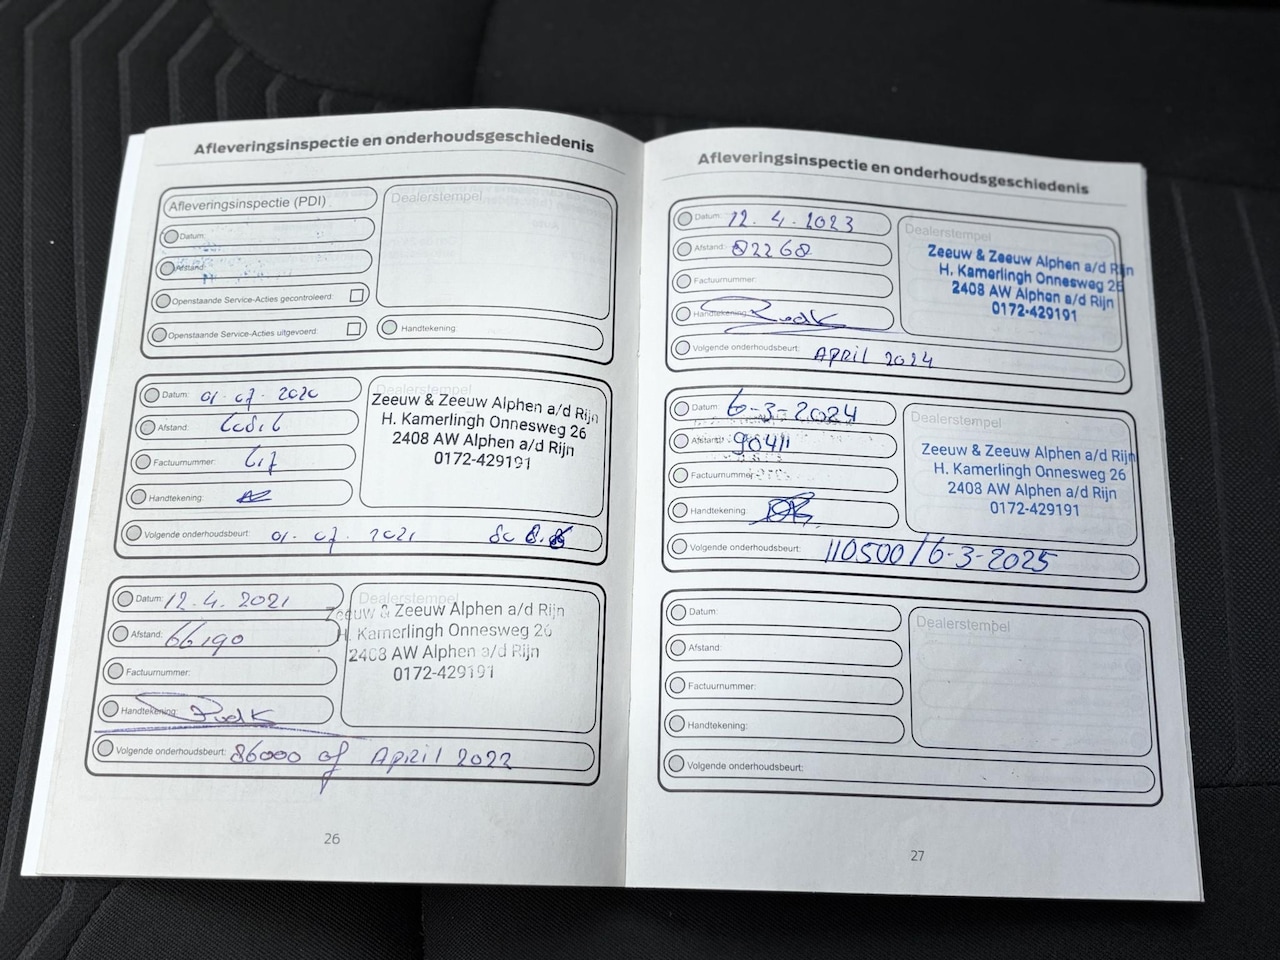 Afleveringsinspectie en onderhoudsgeschiedenis
Afleveringsinspectie (PDI)
Dealerstempel
Datum:
Afstand:
Openstaande Service-Acties gecontroleerd:
Openstaande Service-Acties uitgevoerd:
Handtekening:
Datum: 01-07-2020
Afstand:
Factuurnummer:
Handtekening:
Dealerstempel
Zeeuw & Zeeuw Alphen a/d Rijn
H. Kamerlingh Onnesweg 26
2408 AW Alphen a/d Rijn
0172-429191
Volgende onderhoudsbeurt: 01-07-2021
Datum: 12.4.2021
Afstand: 66190
Factuurnummer:
Handtekening:
Dealerstempel
Zeeuw & Zeeuw Alphen a/d Rijn
H. Kamerlingh Onnesweg 26
2408 AW Alphen a/d Rijn
0172-429191
Volgende onderhoudsbeurt: 86000 of April 2022
26
Afleveringsinspectie en onderhoudsgeschiedenis
Datum: 12.4.2023
Afstand: 82268
Factuurnummer:
Handtekening:
Dealerstempel
Zeeuw & Zeeuw Alphen a/d Rijn
H. Kamerlingh Onnesweg 26
2408 AW Alphen a/d Rijn
0172-429191
Volgende onderhoudsbeurt: April 2024
Datum: 6-3-2024
Afstand: 90411
Factuurnummer:
Handtekening:
Dealerstempel
Zeeuw & Zeeuw Alphen a/d Rijn
H. Kamerlingh Onnesweg 26
2408 AW Alphen a/d Rijn
0172-429191
Volgende onderhoudsbeurt: 110500/6-3-2025
Datum:
Afstand:
Factuurnummer:
Handtekening:
Dealerstempel
Volgende onderhoudsbeurt:
27